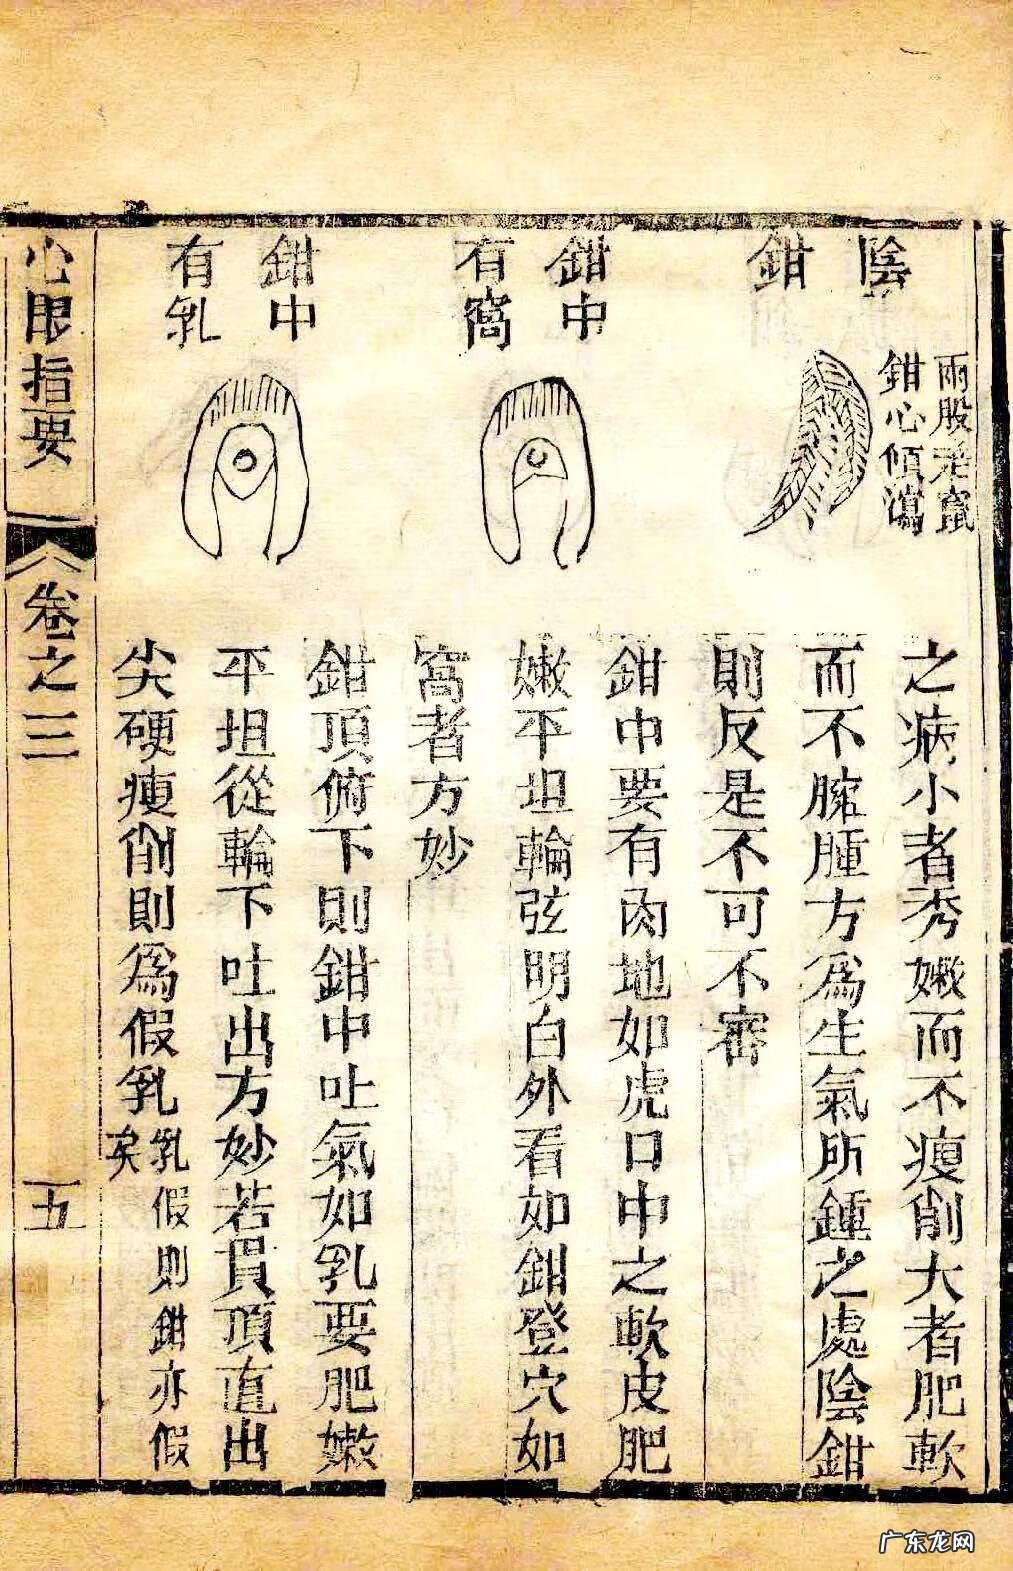 陰
鉗
兩股老竄
鉗心傾瀉
鉗中
有窩
鉗中
有乳
之病小者秀嫩而不瘦削大者肥軟
而不臃腫方爲生氣所鍾之處陰鉗
則反是不可不審
鉗中要有肉地如虎口中之軟皮肥
嫩平坦輪弦明白外看如鉗登穴如
窩者方妙
鉗頂俯下則鉗中吐氣如乳要肥嫩
平坦從輪下吐出方妙若貫頂直出
尖硬瘦削則爲假乳乳假則鉗亦假
矣
心眼指要
卷之三
五
广东龙网